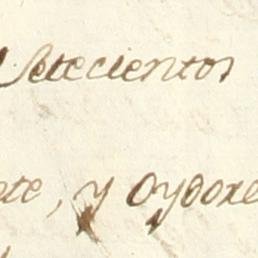 Setecientos
ete, y Oydore